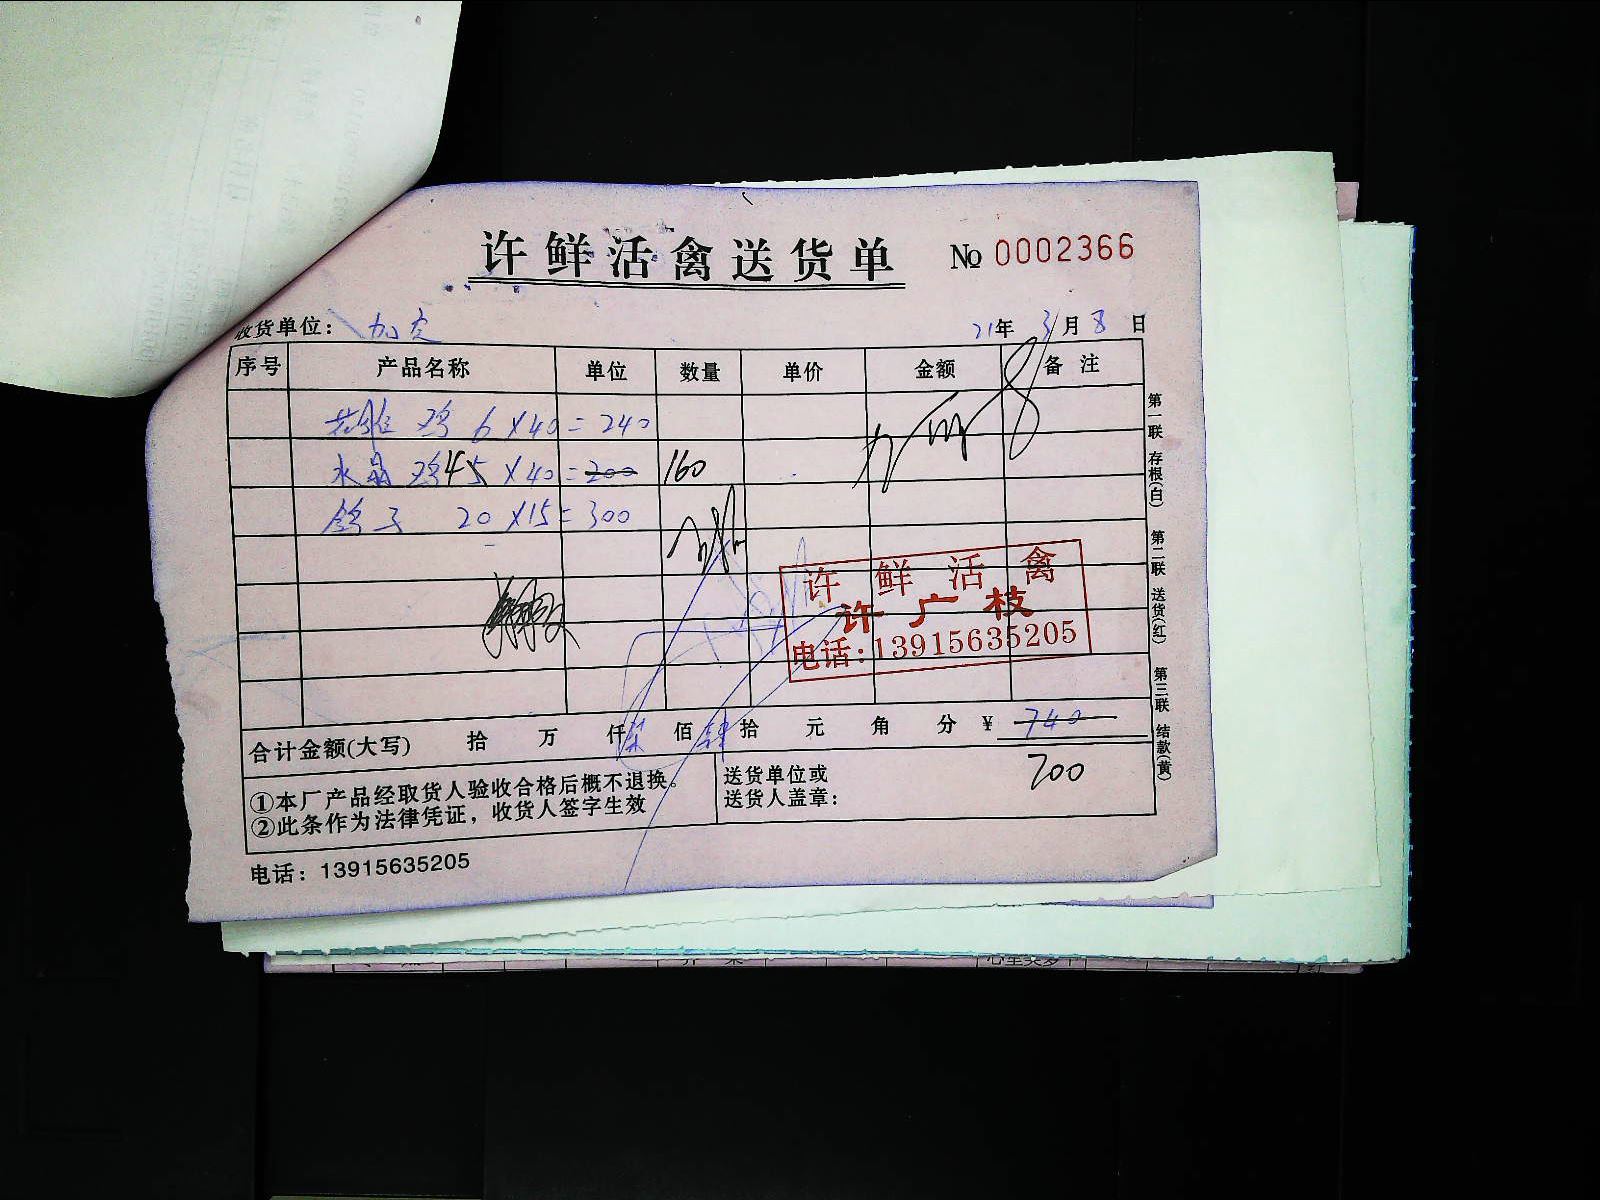 许鲜活禽送货单 № 0002366
收货单位： 21年 3月 8日
序号 产品名称 单位 数量 单价 金额 备注
鸡 6×40=240
水晶鸡 45×40=200 160
鸽子 20×15=300
许鲜活禽
许广枝
电话:13915635205
合计金额(大写) 拾 万 仟柒佰肆拾 元 角 分 ¥ 740
700
①本厂产品经取货人验收合格后概不退换。
②此条作为法律凭证，收货人签字生效
送货单位或
送货人盖章：
电话：13915635205
第一联 存根(白) 第二联 送货(红) 第三联 结款(黄)